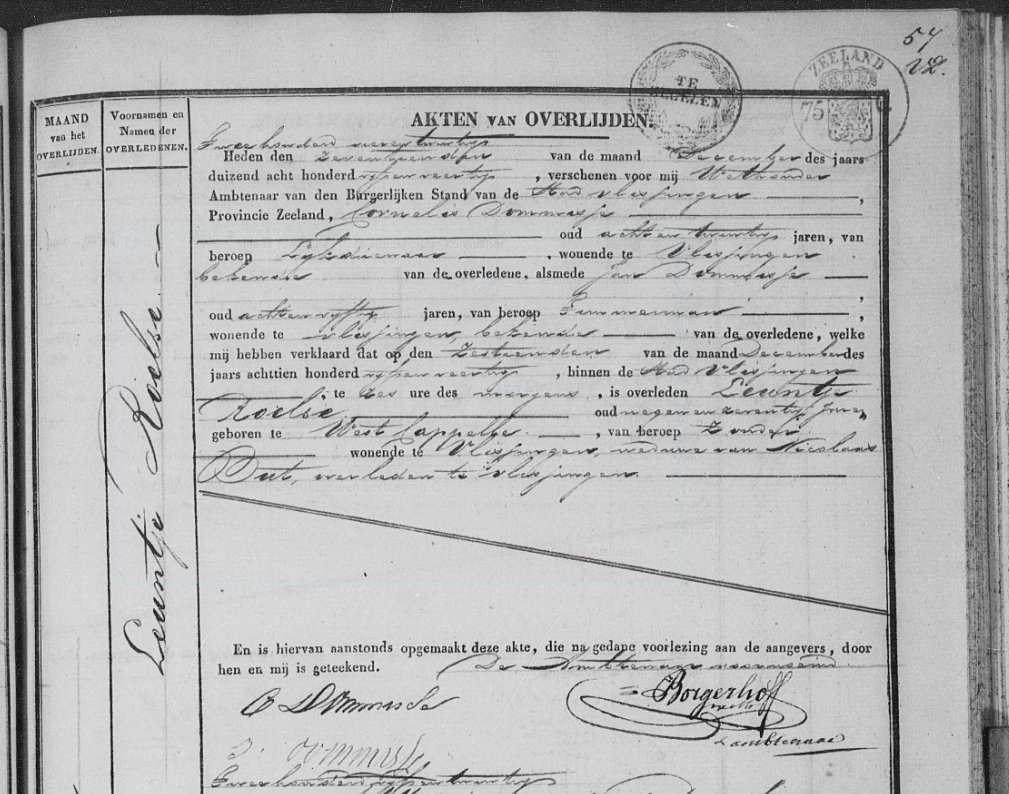 57
V2.
TE
ZEGELEN
ZEELAND
75
MAAND
van het
OVERLIJDEN.
Voornamen en
Namen der
OVERLEDENEN.
Leuntje Roelse.
AKTEN VAN OVERLIJDEN.
Twee honderd vierentwintig
Heden den zeventienden van de maand December des jaars
duizend acht honderd vijfenveertig, verschenen voor mij Wethouder
Ambtenaar van den Burgerlijken Stand van de Stad Vlissingen,
Provincie Zeeland, Cornelis Dommisje
oud achtentwintig jaren, van
beroep, wonende te Vlissingen
bekende van de overledene, alsmede Jan Dommisje,
oud achtenvijftig jaren, van beroep Timmerman,
wonende te Vlissingen, bekende van de overledene, welke
mij hebben verklaard dat op den zestienden van de maand December des
jaars achttien honderd vijfenveertig, binnen de Stad Vlissingen
, te zes ure des morgens, is overleden Leuntje
Roelse oud negen en zeventig jaren
geboren te West Cappelle, van beroep zonder
wonende te Vlissingen, weduwe van Nicolaas
But, overleden te Vlissingen.
En is hiervan aanstonds opgemaakt deze akte, die na gedane voorlezing aan de aangevers, door
hen en mij is geteekend. De Ambtenaar voornoemd
C Dommisse
Borgerhoff
J. Dommisse
Twee honderd vijfentwintig